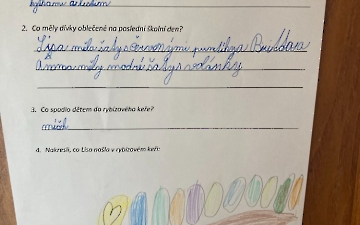 2. Co měly dívky oblečené na poslední školní den?
Lisa měla šaty s červenými puntíky a
Anna měly modré šaty s volánky
3. Co spadlo dětem do rybízového keře?
míč
4. Nakresli, co Lisa našla v rybízovém keři: